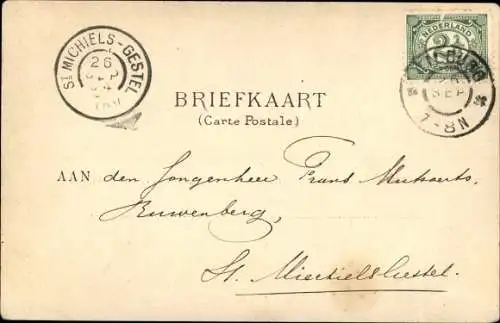 NEDERLAND
2½
ST MICHIELS-GESTEL
26
SEP
04
TILBURG
SEP
7-8N
BRIEFKAART
(Carte Postale)
AAN den Jongenheer Frans Mutsaerts,
Ruwenberg,
St. Michielsgestel.